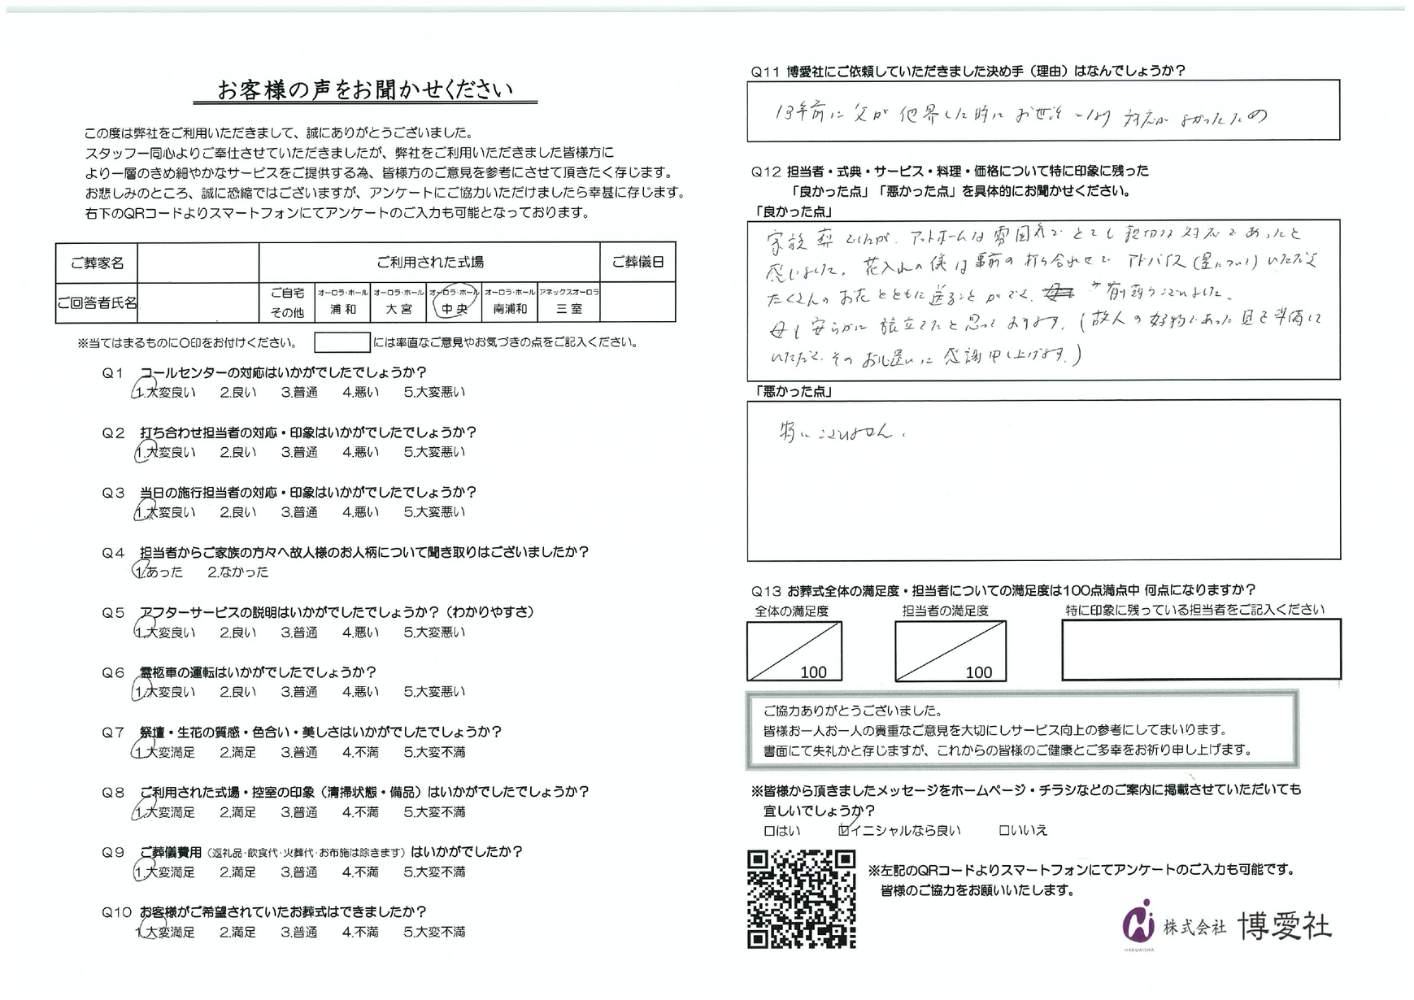 お客様の声をお聞かせください
この度は弊社をご利用いただきまして、誠にありがとうございました。
スタッフ一同心よりご奉仕させていただきましたが、弊社をご利用いただきました皆様方に
より一層のきめ細やかなサービスをご提供する為、皆様方のご意見を参考にさせて頂きたく存じます。
お悲しみのところ、誠に恐縮ではございますが、アンケートにご協力いただけましたら幸甚に存じます。
右下のQRコードよりスマートフォンにてアンケートのご入力も可能となっております。
ご葬家名 ご利用された式場 ご葬儀日
ご回答者氏名 ご自宅 その他 オーロラ・ホール 浦和 オーロラ・ホール 大宮 オーロラ・ホール 中央 オーロラ・ホール 南浦和 アネックスオーロラ 三室
※当てはまるものに〇印をお付けください。 には率直なご意見やお気づきの点をご記入ください。
Q1 コールセンターの対応はいかがでしたでしょうか?
1.大変良い 2.良い 3.普通 4.悪い 5.大変悪い
Q2 打ち合わせ担当者の対応・印象はいかがでしたでしょうか?
1.大変良い 2.良い 3.普通 4.悪い 5.大変悪い
Q3 当日の施行担当者の対応・印象はいかがでしたでしょうか?
1.大変良い 2.良い 3.普通 4.悪い 5.大変悪い
Q4 担当者からご家族の方々へ故人様のお人柄について聞き取りはございましたか?
1.あった 2.なかった
Q5 アフターサービスの説明はいかがでしたでしょうか?(わかりやすさ)
1.大変良い 2.良い 3.普通 4.悪い 5.大変悪い
Q6 霊柩車の運転はいかがでしたでしょうか?
1.大変良い 2.良い 3.普通 4.悪い 5.大変悪い
Q7 祭壇・生花の質感・色合い・美しさはいかがでしたでしょうか?
1.大変満足 2.満足 3.普通 4.不満 5.大変不満
Q8 ご利用された式場・控室の印象(清掃状態・備品)はいかがでしたでしょうか?
1.大変満足 2.満足 3.普通 4.不満 5.大変不満
Q9 ご葬儀費用(返礼品・飲食代・火葬代・お布施は除きます)はいかがでしたか?
1.大変満足 2.満足 3.普通 4.不満 5.大変不満
Q10 お客様がご希望されていたお葬式はできましたか?
1.大変満足 2.満足 3.普通 4.不満 5.大変不満
Q11 博愛社にご依頼していただきました決め手(理由)はなんでしょうか?
13年前に父が他界した時にお世話になり 対応がよかったため
Q12 担当者・式典・サービス・料理・価格について特に印象に残った
「良かった点」「悪かった点」を具体的にお聞かせください。
「良かった点」
家族葬でしたが、アットホームな雰囲気でとても親切な対応であったと
感じました。花入れの儀は事前の打ち合わせでアドバイス(量について)いただき
たくさんのお花とともに送ることができ、 有難うございました。
母も安らかに旅立てたと思っております。(故人の好物であった 準備して
いただき、そのお心遣いに感謝申し上げます。)
「悪かった点」
特にございません。
Q13 お葬式全体の満足度・担当者についての満足度は100点満点中 何点になりますか?
全体の満足度 担当者の満足度 特に印象に残っている担当者をご記入ください
100 100
ご協力ありがとうございました。
皆様お一人お一人の貴重なご意見を大切にしサービス向上の参考にしてまいります。
書面にて失礼かと存じますが、これからの皆様のご健康とご多幸をお祈り申し上げます。
※皆様から頂きましたメッセージをホームページ・チラシなどのご案内に掲載させていただいても
宜しいでしょうか?
□はい ☑イニシャルなら良い □いいえ
※左記のQRコードよりスマートフォンにてアンケートのご入力も可能です。
皆様のご協力をお願いいたします。
HAKUAISHA 株式会社 博愛社